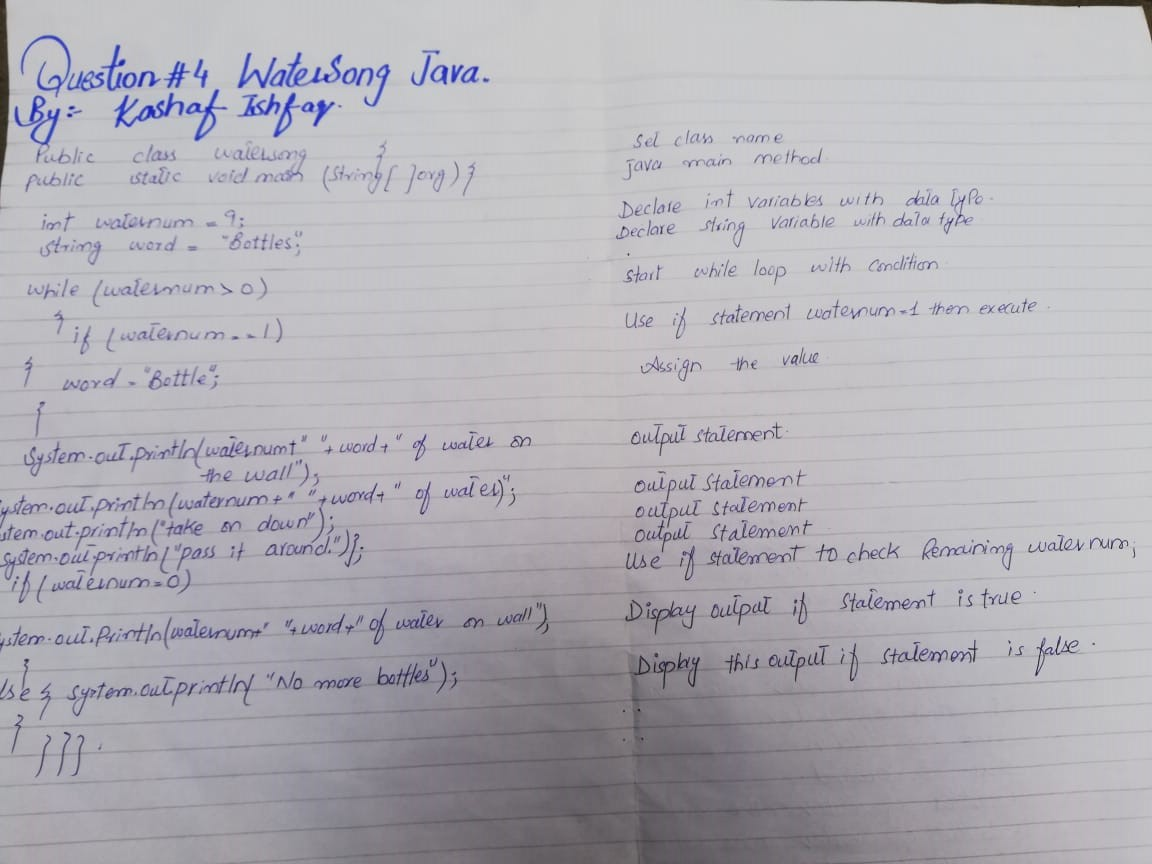 Question #4 WaterSong Java.
By:- Kashaf Ishfaq.
Public class watersong {
public static void main (String[ ]org) {
int waternum = 9;
string word = "Bottles";
while (waternum > 0)
{ if (waternum == 1)
{ word = "Bottle";
}
System.out.println(waternum+" "+word+" of water on
the wall");
ystem.out.println(waternum+" "+word+" of water)";
stem.out.println("take on down");
System.out.println("pass it around.")};
if (waternum=0)
ystem.out.Println(waternum+" "+word+" of water on wall");
}
lse { system.out.println( "No more bottles");
}
}}}.
Set class name
java main method
Declare int variables with data typo.
Declare string variable with data type
start while loop with condition
Use if statement waternum=1 then execute.
Assign the value
output statement.
output statement
output statement
output statement
Use if statement to check Remaining waternum;
Display output if statement is true.
Display this output if statement is false.